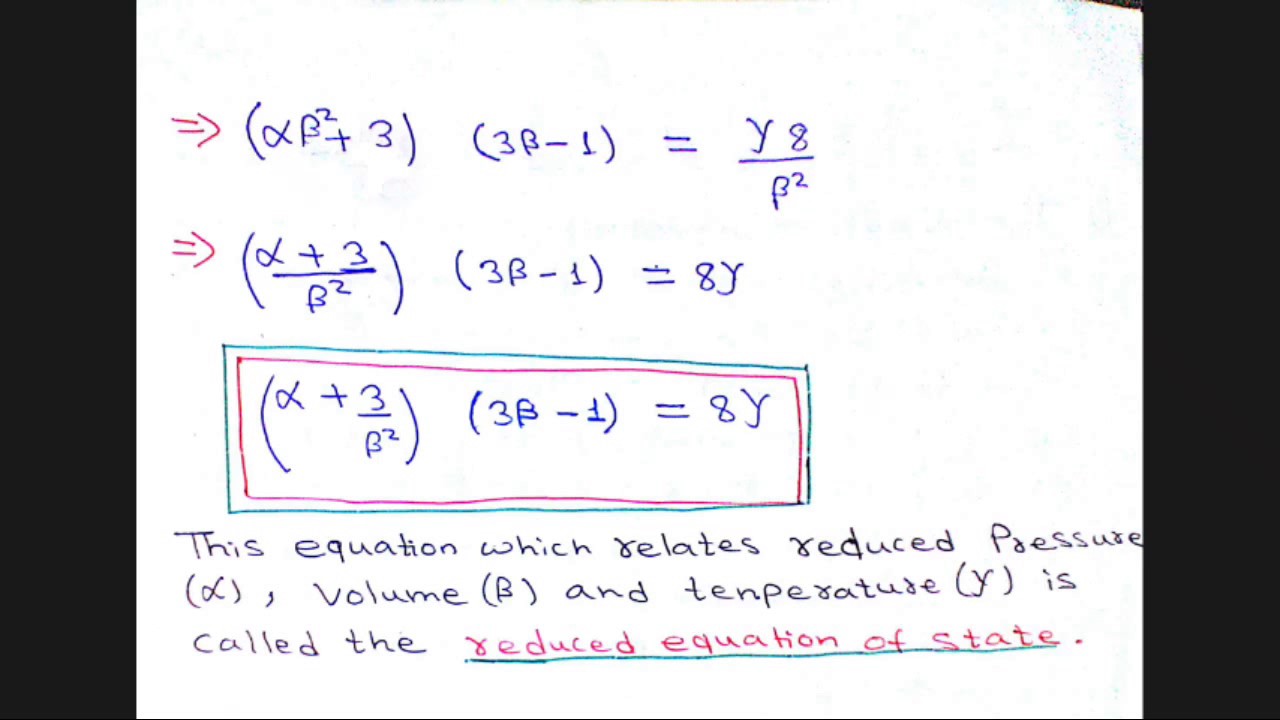 ⇒ (αβ²+ 3) (3β-1) = γ8/β²
⇒ (α + 3/β²) (3β-1) = 8γ
(α + 3/β²) (3β-1) = 8γ
This equation which relates reduced Pressure
(α), Volume (β) and tenperature (γ) is
called the reduced equation of state.